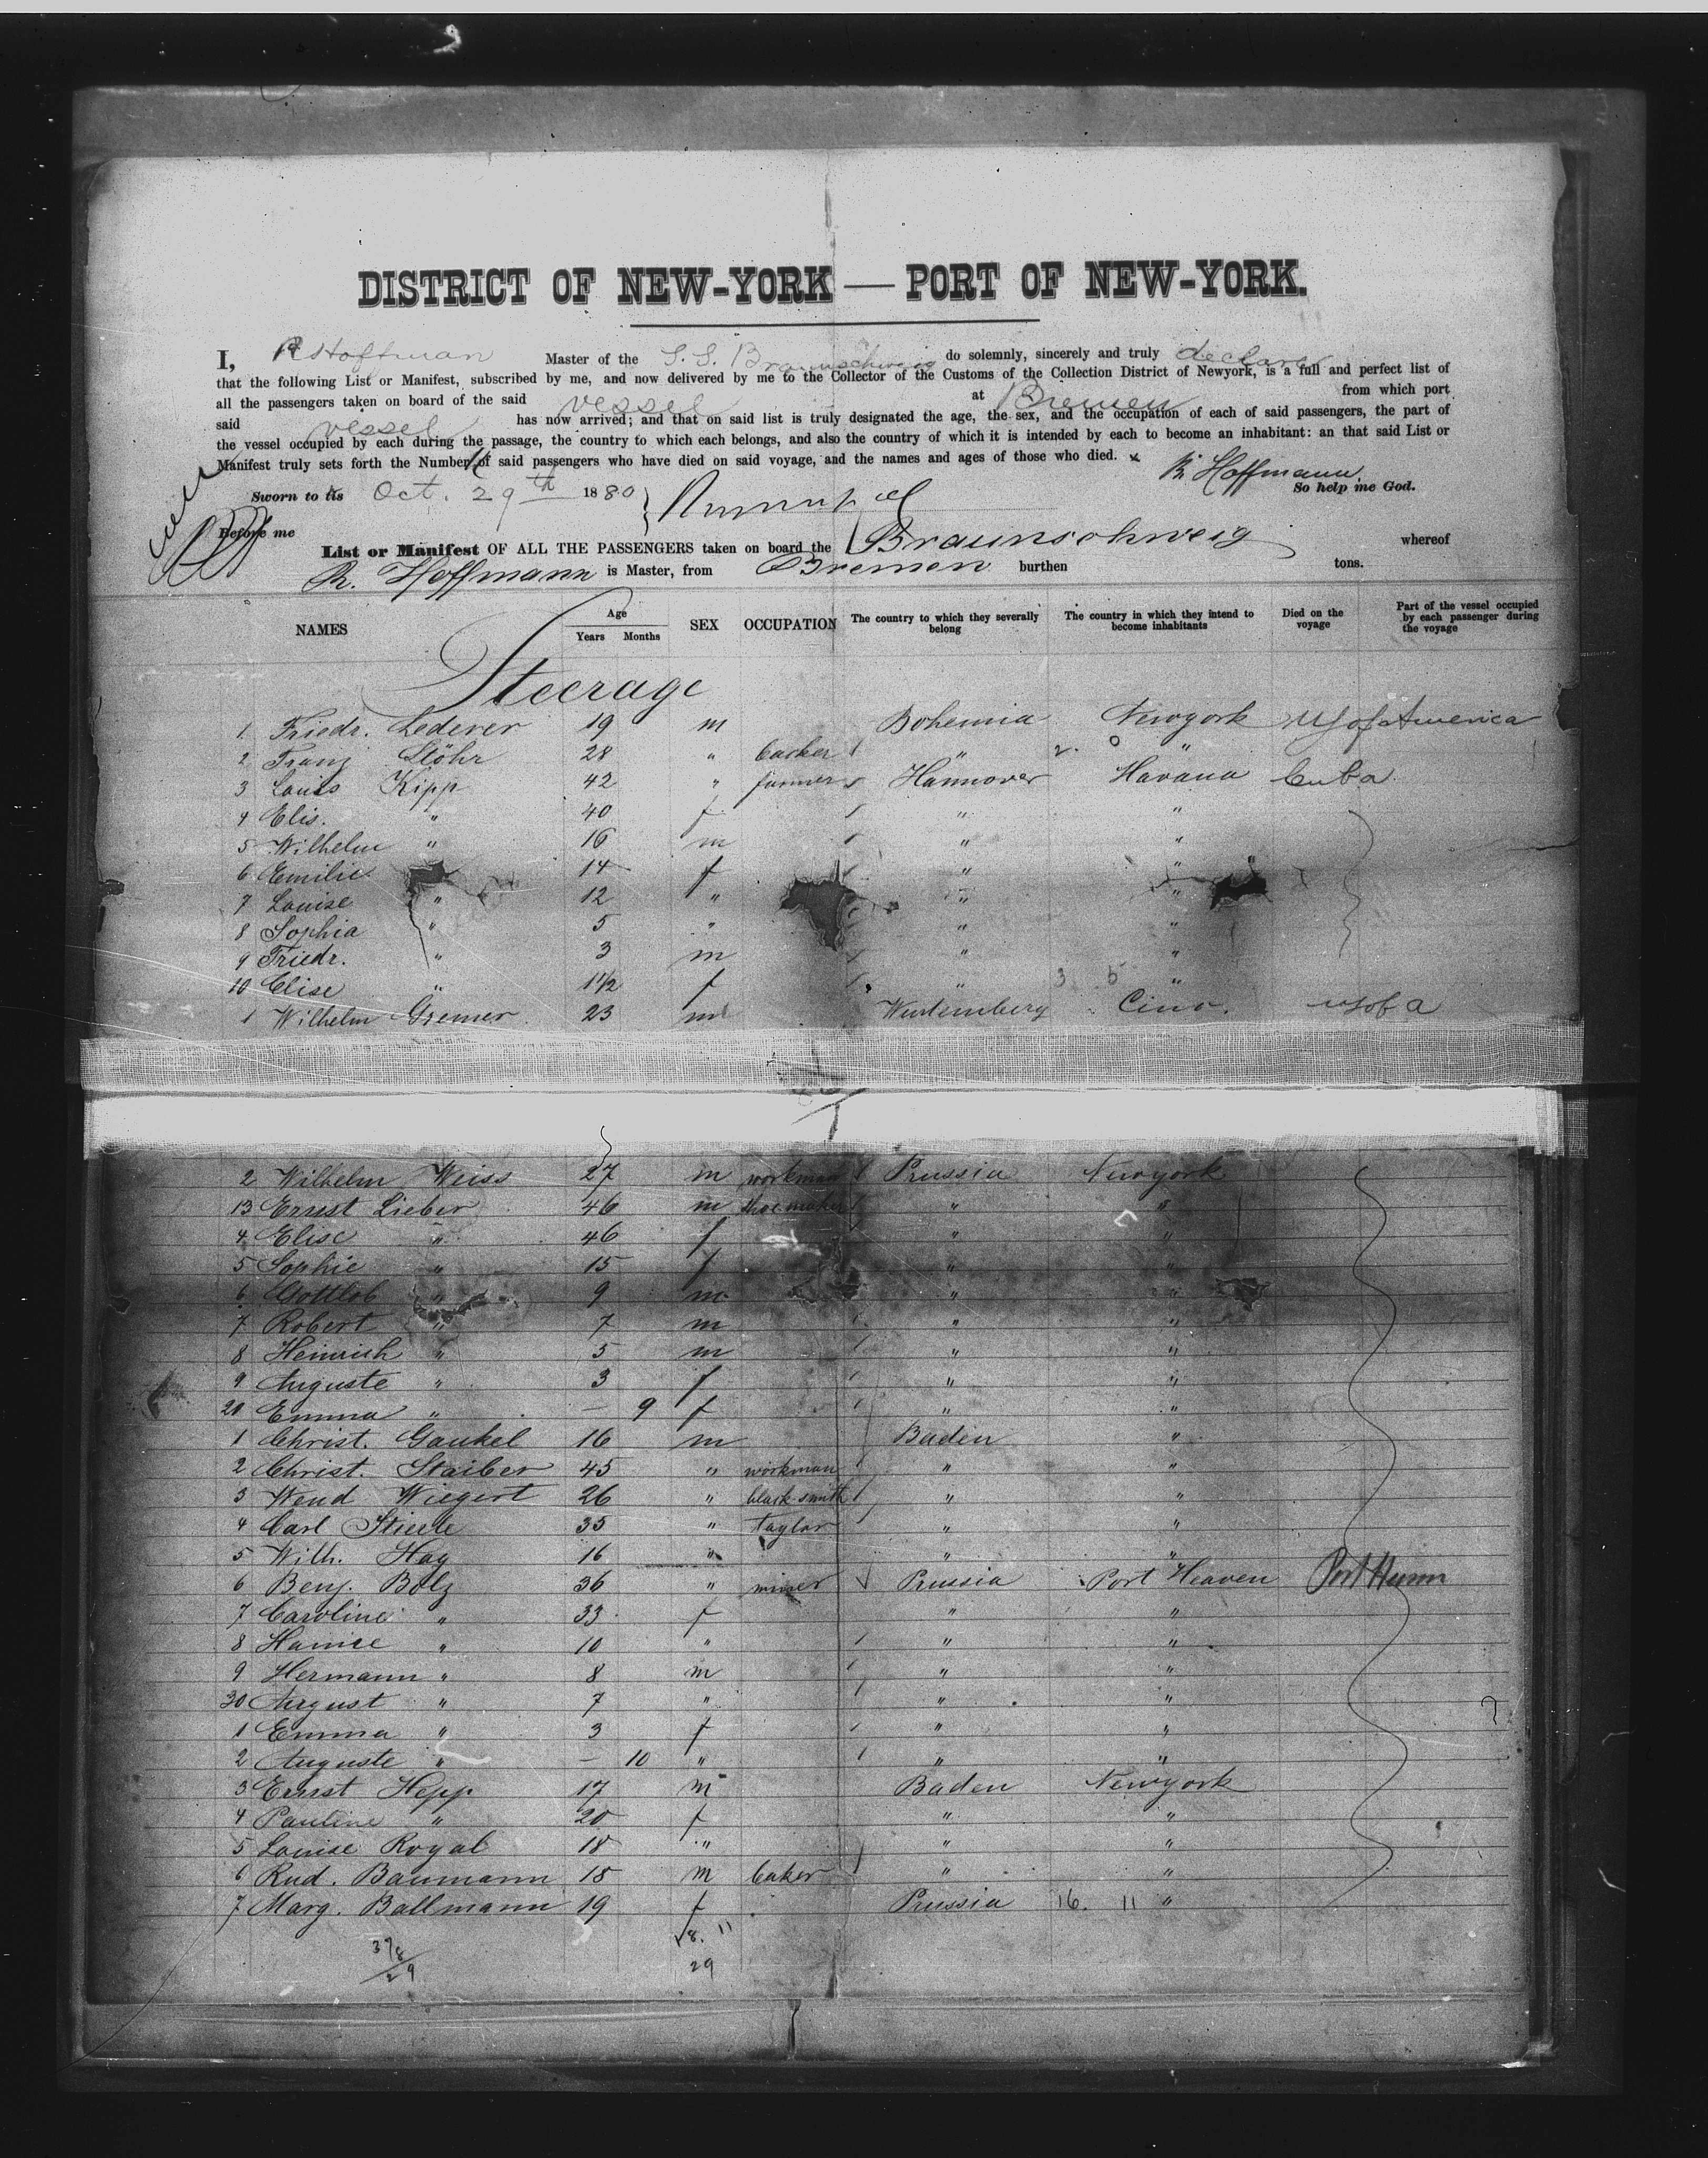 DISTRICT OF NEW-YORK — PORT OF NEW-YORK.
I, R Hoffman Master of the S. S. Braunschweig do solemnly, sincerely and truly declare
that the following List or Manifest, subscribed by me, and now delivered by me to the Collector of the Customs of the Collection District of Newyork, is a full and perfect list of
all the passengers taken on board of the said vessel at Bremen from which port
said vessel has now arrived; and that on said list is truly designated the age, the sex, and the occupation of each of said passengers, the part of
the vessel occupied by each during the passage, the country to which each belongs, and also the country of which it is intended by each to become an inhabitant: an that said List or
Manifest truly sets forth the Number of said passengers who have died on said voyage, and the names and ages of those who died.
R. Hoffmann
Sworn to tis Oct. 29th 1880 So help me God.
Before me
List or Manifest OF ALL THE PASSENGERS taken on board the Braunschweig whereof
R. Hoffmann is Master, from Bremen burthen tons.
NAMES Age Years Months SEX OCCUPATION The country to which they severally belong The country in which they intend to become inhabitants Died on the voyage Part of the vessel occupied by each passenger during the voyage
Steerage
1 Friedr. Lederer 19 m Bohemia Newyork US of America
2 Franz Stöhr 28 " backer " 2. 0 "
3 Louis Kipp 42 " farmer Hannover Havana Cuba
4 Elis. " 40 f " "
5 Wilhelm " 16 m " "
6 Emilie 14 f " "
7 Louise " 12 " " "
8 Sophia " 5 " " "
9 Friedr. " 3 m " "
10 Elise " 1 1/2 f " 3. 5 "
1 Wilhelm Gremer 23 m Wurtemberg Cinc. US of A
2 Wilhelm Weiss 27 m workman Prussia Newyork
13 Ernst Lieber 46 m shoemaker " "
4 Elise " 46 f " "
5 Sophie " 15 f " "
6 Gottlob " 9 m " "
7 Robert " 7 m " "
8 Heinrich " 5 m " "
9 Auguste " 3 f " "
20 Emma " — 9 f " "
1 Christ. Gaukel 16 m Baden "
2 Christ. Staiber 45 " workman " "
3 Wend Wiegert 26 " black-smith " "
4 Carl 35 " taylor " "
5 Wilh. Hag 16 " " "
6 Benj. Bolz 36 " miner Prussia Port Heaven Port Huron
7 Caroline " 33 f " "
8 " 10 " " "
9 Hermann " 8 m " "
30 August " 7 " " "
1 Emma " 3 f " "
2 Auguste " — 10 " " "
3 Ernst Hepp 17 m Baden Newyork
4 Pauline " 20 f " "
5 Louise Royal 18 " " "
6 Rud. Baumann 18 m baker " "
7 Marg. Ballmann 19 f Prussia 16. 11 "
37 8 8. 11
29 29